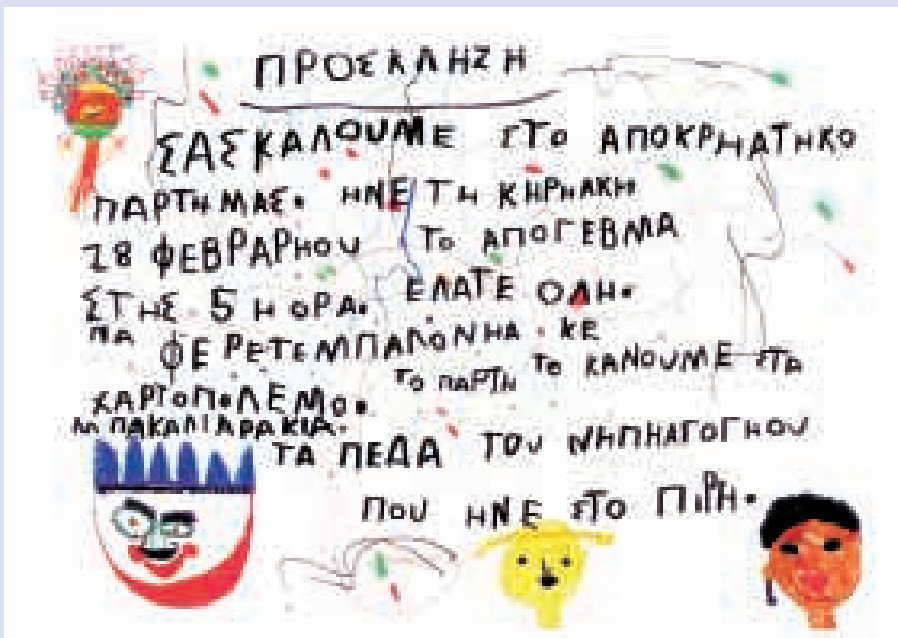 ΠΡΟΣΚΛΗΖΗ
ΣΑΣ ΚΑΛΟΥΜΕ ΣΤΟ ΑΠΟΚΡΗΑΤΗΚΟ
ΠΑΡΤΗ ΜΑΣ. ΗΝΕ ΤΗ ΚΗΡΗΑΚΗ
28 ΦΕΒΡΑΡΗΟΥ ΤΟ ΑΠΟΓΕΒΜΑ
ΣΤΗΣ 5 Η ΟΡΑ. ΕΛΑΤΕ ΟΛΗ.
ΝΑ ΦΕΡΕΤΕ ΜΠΑΛΟΝΗΑ. ΚΕ
ΧΑΡΤΟΠΟΛΕΜΟ. ΤΟ ΠΑΡΤΗ ΤΟ ΚΑΝΟΥΜΕ ΣΤΑ
ΜΠΑΚΑΛΙΑΡΑΚΙΑ.
ΤΑ ΠΕΔΑ ΤΟΥ ΝΗΠΗΑΓΟΓΗΟΥ
ΠΟΥ ΗΝΕ ΣΤΟ ΠΙΡΗ.